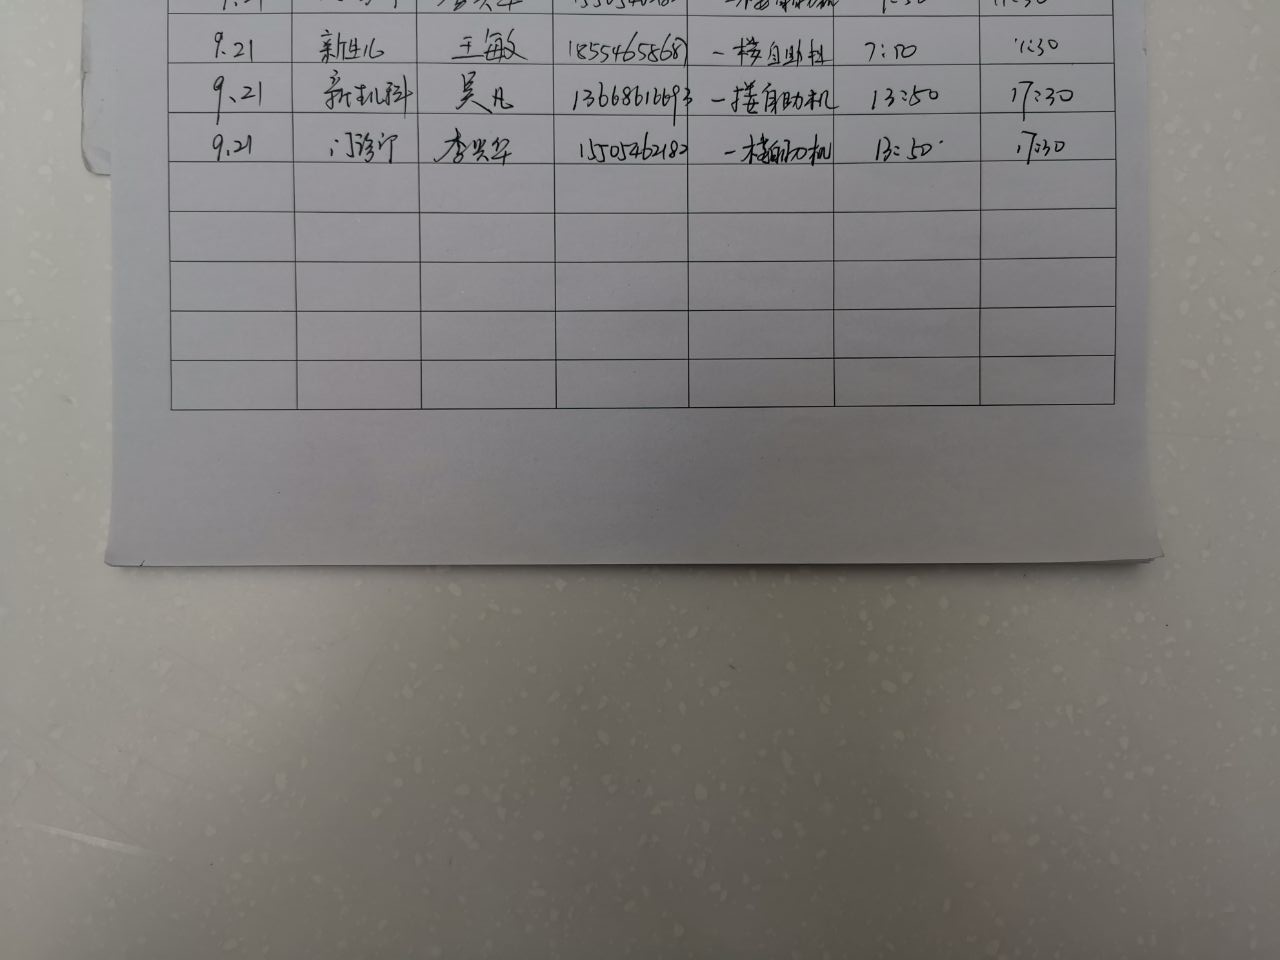 9.21 新生儿 王敏 18554658687 一楼自助机 7:50 11:30
9.21 新生儿科 吴凡 13668616693 一楼自助机 13:50 17:30
9.21 门诊部 李兴华 15505462182 一楼自助机 13:50 17:30